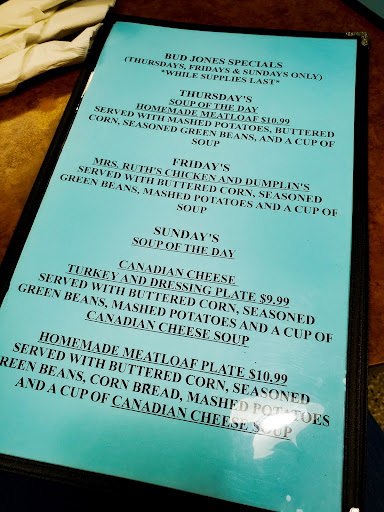 BUD JONES SPECIALS
(THURSDAYS, FRIDAYS & SUNDAYS ONLY)
*WHILE SUPPLIES LAST*
THURSDAY'S
SOUP OF THE DAY
HOMEMADE MEATLOAF $10.99
SERVED WITH MASHED POTATOES, BUTTERED
CORN, SEASONED GREEN BEANS, AND A CUP OF
SOUP
FRIDAY'S
MRS. RUTH'S CHICKEN AND DUMPLIN'S
SERVED WITH BUTTERED CORN, SEASONED
GREEN BEANS, MASHED POTATOES AND A CUP OF
SOUP
SUNDAY'S
SOUP OF THE DAY
CANADIAN CHEESE
TURKEY AND DRESSING PLATE $9.99
SERVED WITH BUTTERED CORN, SEASONED
GREEN BEANS, MASHED POTATOES AND A CUP OF
CANADIAN CHEESE SOUP
HOMEMADE MEATLOAF PLATE $10.99
SERVED WITH BUTTERED CORN, SEASONED
GREEN BEANS, CORN BREAD, MASHED POTATOES
AND A CUP OF CANADIAN CHEESE SOUP